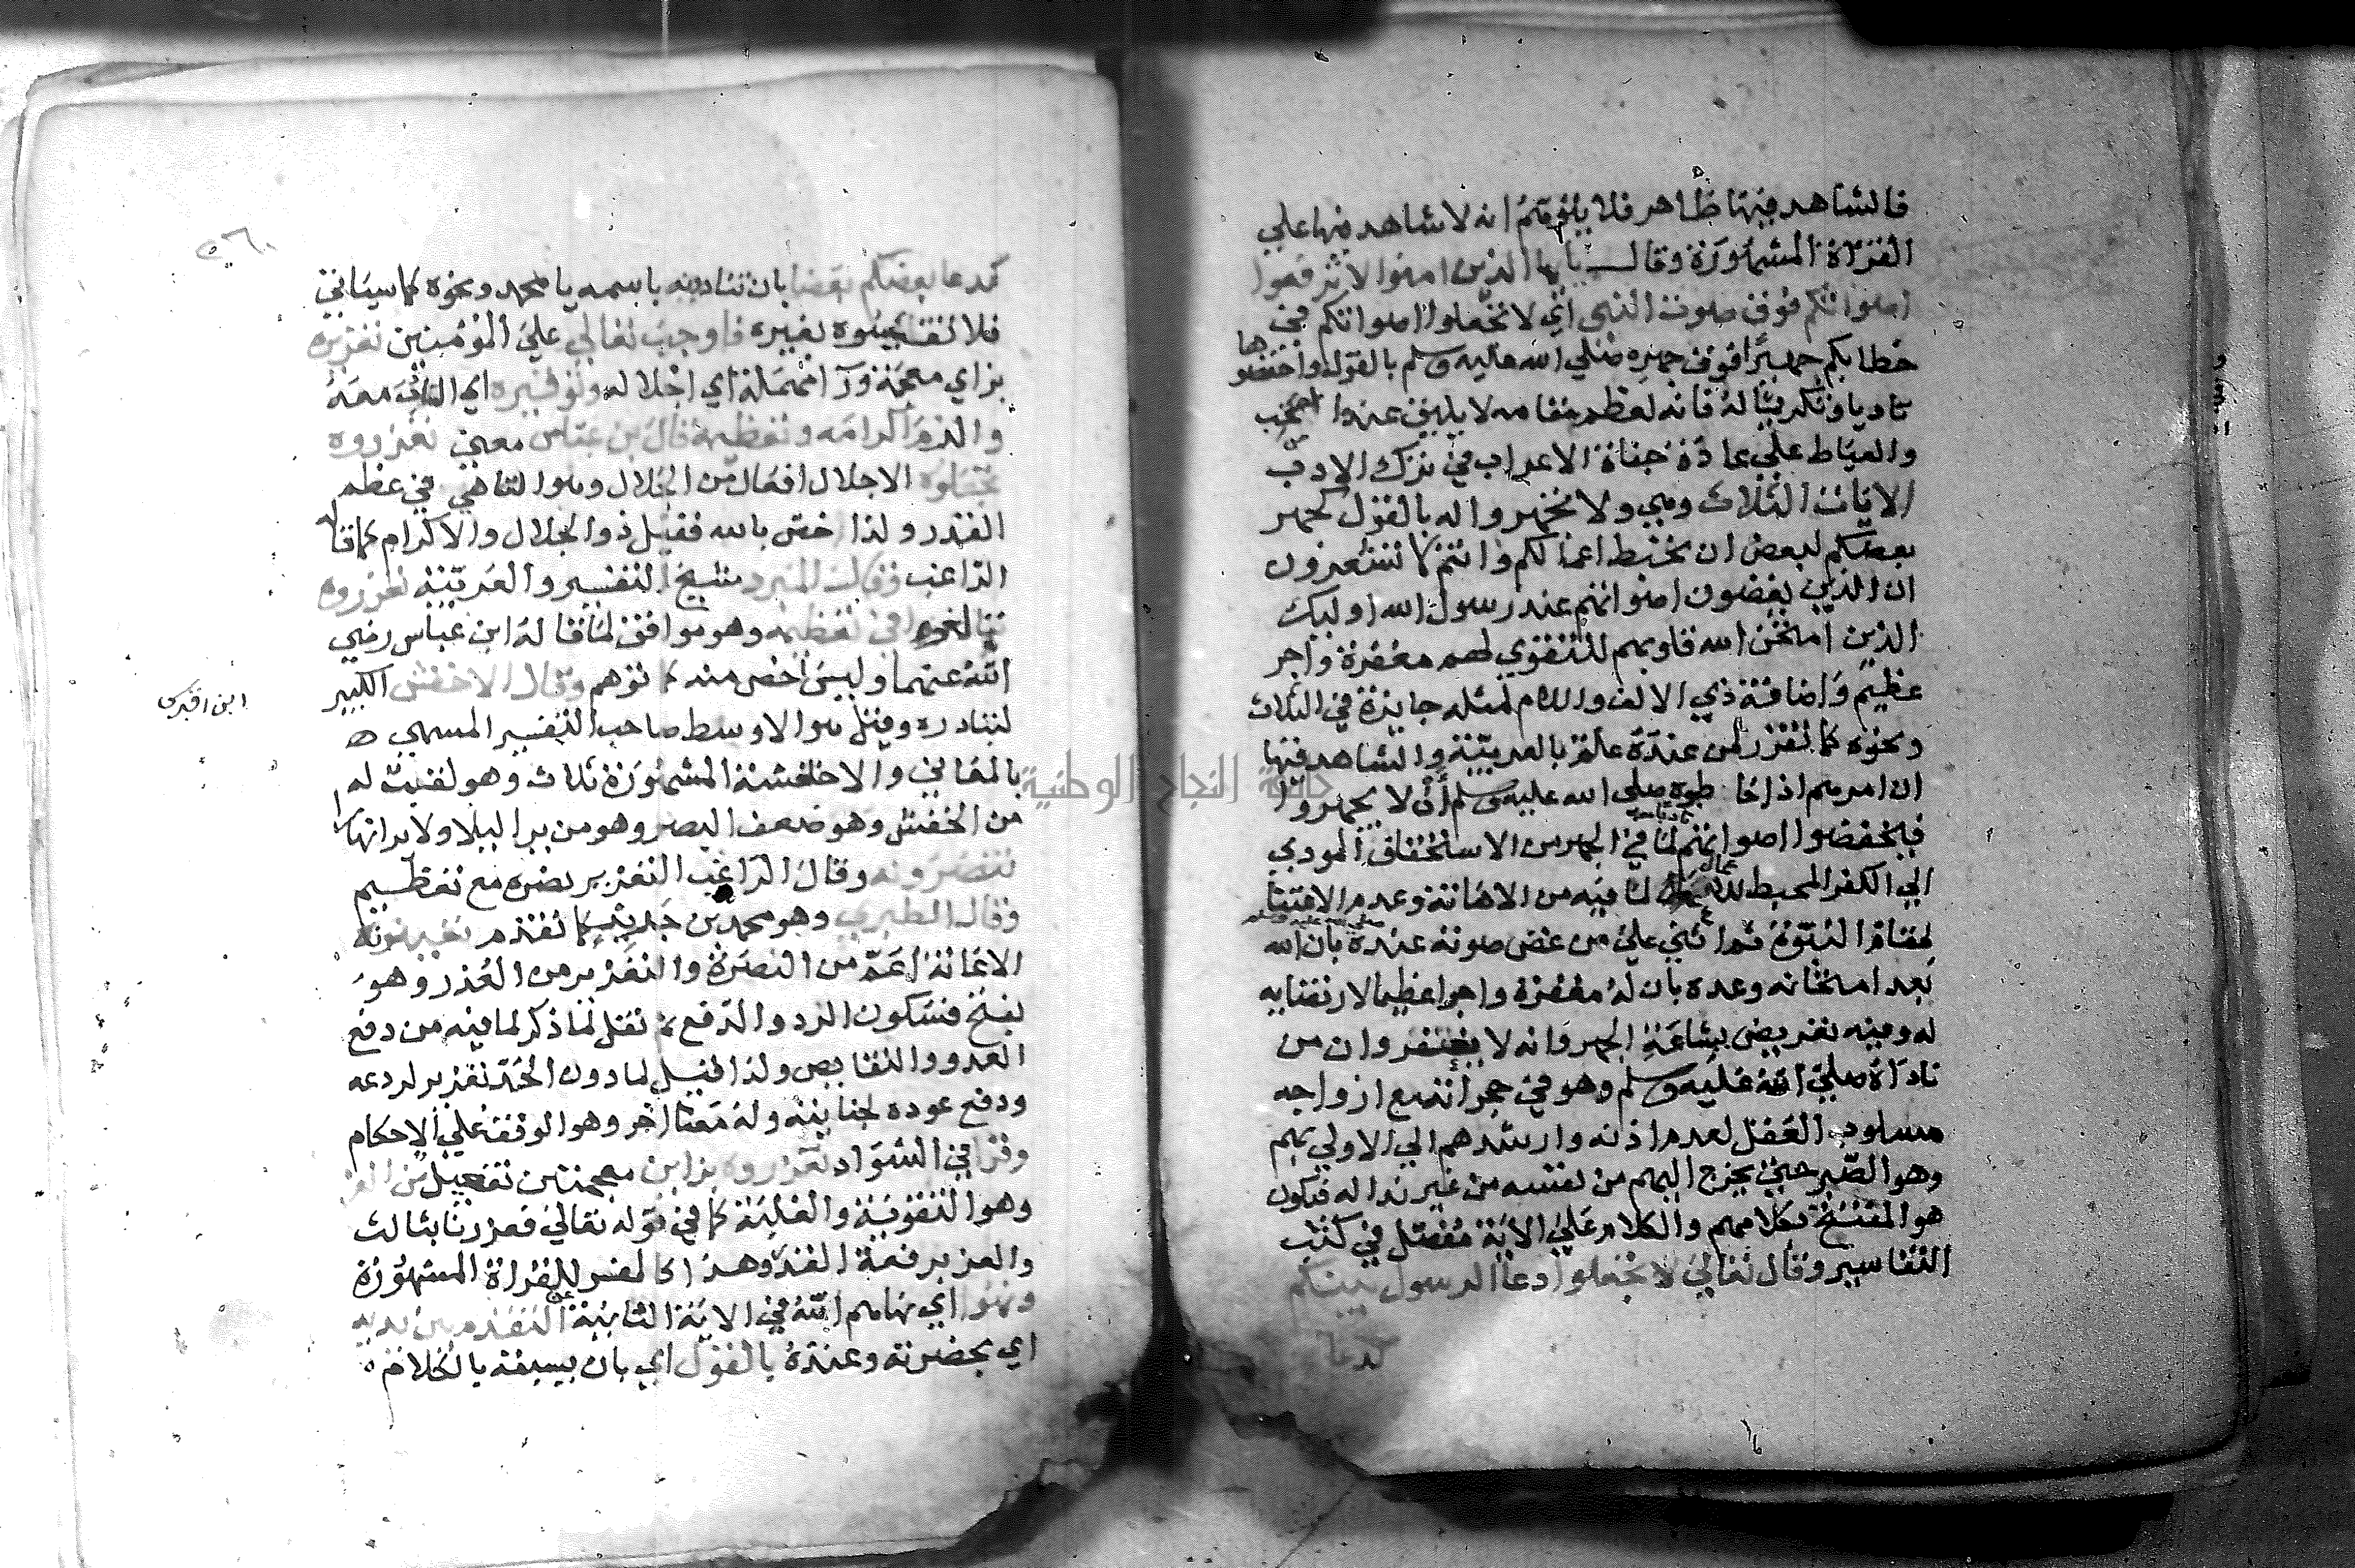 فالشاهد فيها ظاهر فلا يتوهم انه لا شاهد فيها علي
القراة المشهورة وقال يا ايها الذين امنوا لا ترفعوا
اصواتكم فوق صوت النبي اي لا تجعلوا اصواتكم في
خطابكم جهرا فوق جهره صلي الله عليه وسلم بالقول واخفضوها
تادبا وتكريما له فانه لعظم مقامه لا يليق عنده
والعياط علي عادة جفاة الاعراب في ترك الادب
الايات الثلاث وهي ولا تجهروا له بالقول كجهر
بعضكم لبعض ان تحبط اعمالكم وانتم لا تشعرون
ان الذين يغضون اصواتهم عند رسول الله اوليك
الذين امتحن الله قلوبهم للتقوي لهم مغفرة واجر
عظيم واضافة ذي الالف واللام لمثله جايزة في الثلاث
ونحوه كما تقرر لمن عنده علم بالعربية والشاهد فيها
ان امرهم اذا خاطبوه صلي الله عليه وسلم أن لا يجهروا
فيخفضوا اصواتهم لما في الجهر من الاستخفاف المودي
الي الكفر المحبط للاعمال لما فيه من الاهانة وعدم الاعتنا
لمقام النبوة ثم اثني علي من غض صوته عنده بان الله
بعد امتحانه وعده بان له مغفرة واجرا عظيما لارتضايه
له وفيه تعريض بشاعة الجهر وانه لا يغتفر وان من
ناداه صلي الله عليه وسلم وهو في حجراته مع ازواجه
مسلوب العقل لعدم اذنه وارشدهم الي الاولي بهم
وهو الصبر حتي يخرج اليهم من نفسه من غير ندا له فيكون
هو المفتتح بكلامهم والكلام علي الاية مفصل في كتب
التفاسير وقال تعالي لا تجعلوا دعا الرسول بينكم
كدعا
٥٦٠
كدعا بعضكم بعضا بان تنادونه باسمه يا محمد ونحوه كما سياتي
فلا بغيره فاوجب تعالي علي المؤمنين تعزيره
بزاي معجمة ورآ مهملة اي اجلاله وتوقيره اي التادب معه
والزم اكرامه وتعظيمه قال بن عباس معني تعزروه
تجلوه الاجلال افعال من الجلال وهو التناهي في عظم
القدر ولذا خص بالله فقيل ذو الجلال والاكرام كما قاله
الراغب وقال المبرد شيخ التفسير والعربية تعزروه
تبالغوا في تعظيمه وهو موافق لما قاله ابن عباس رضي
الله عنهما وليس اخص منه كما توهم وقال الاخفش الكبير
وقيل هو الاوسط صاحب التفسير المسمي
بالمعاني والاخافشة المشهورة ثلاث وهو لقب له
من الخفش وهو ضعف البصر وهو من يرا ليلا ولا يرا نهارا
تنصرونه وقال الراغب التعزير نصره مع تعظيم
وقال الطبري وهو محمد بن جرير كما تقدم تعينونه
الاعانة اعم من النصرة والتعزير من العزر وهو
بفتح فسكون الرد والدفع ثم نقل لما ذكر لما فيه من دفع
العدو والنقايص ولذا قيل لما دون الحد تعزير لردعه
ودفع عوده لجنايته وله معنا آخر وهو الوقفة علي الاحكام
وقرا في الشواذ تعززوه بزاين معجمتين تفعيل من العز
وهو التقوية والغلبة كما في قوله تعالي فعززنا بثالث
والعزيز رفعة القدر وهذا كالمفسر للقراة المشهورة
ونهوا اي نهاهم الله في الاية الثانية عن التقدم بين يديه
اي بحضرته وعنده بالقول اي بان يسبقه بالكلام
جامعة النجاح الوطنية